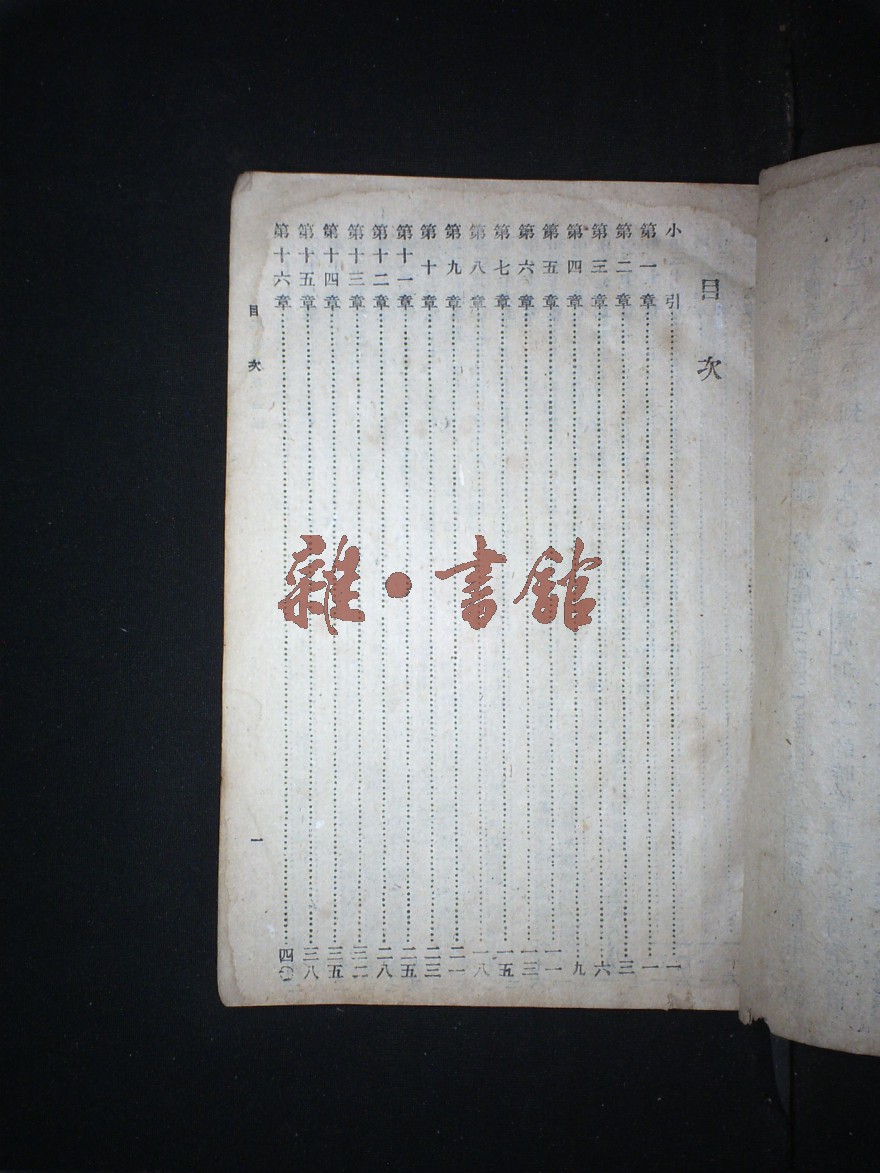 目次
小引……一
第一章……一
第二章……三
第三章……六
第四章……九
第五章……一一
第六章……一三
第七章……一五
第八章……一八
第九章……二一
第十章……二三
第十一章……二五
第十二章……二八
第十三章……三二
第十四章……三五
第十五章……三八
第十六章……四〇
目次
一
雜•書館